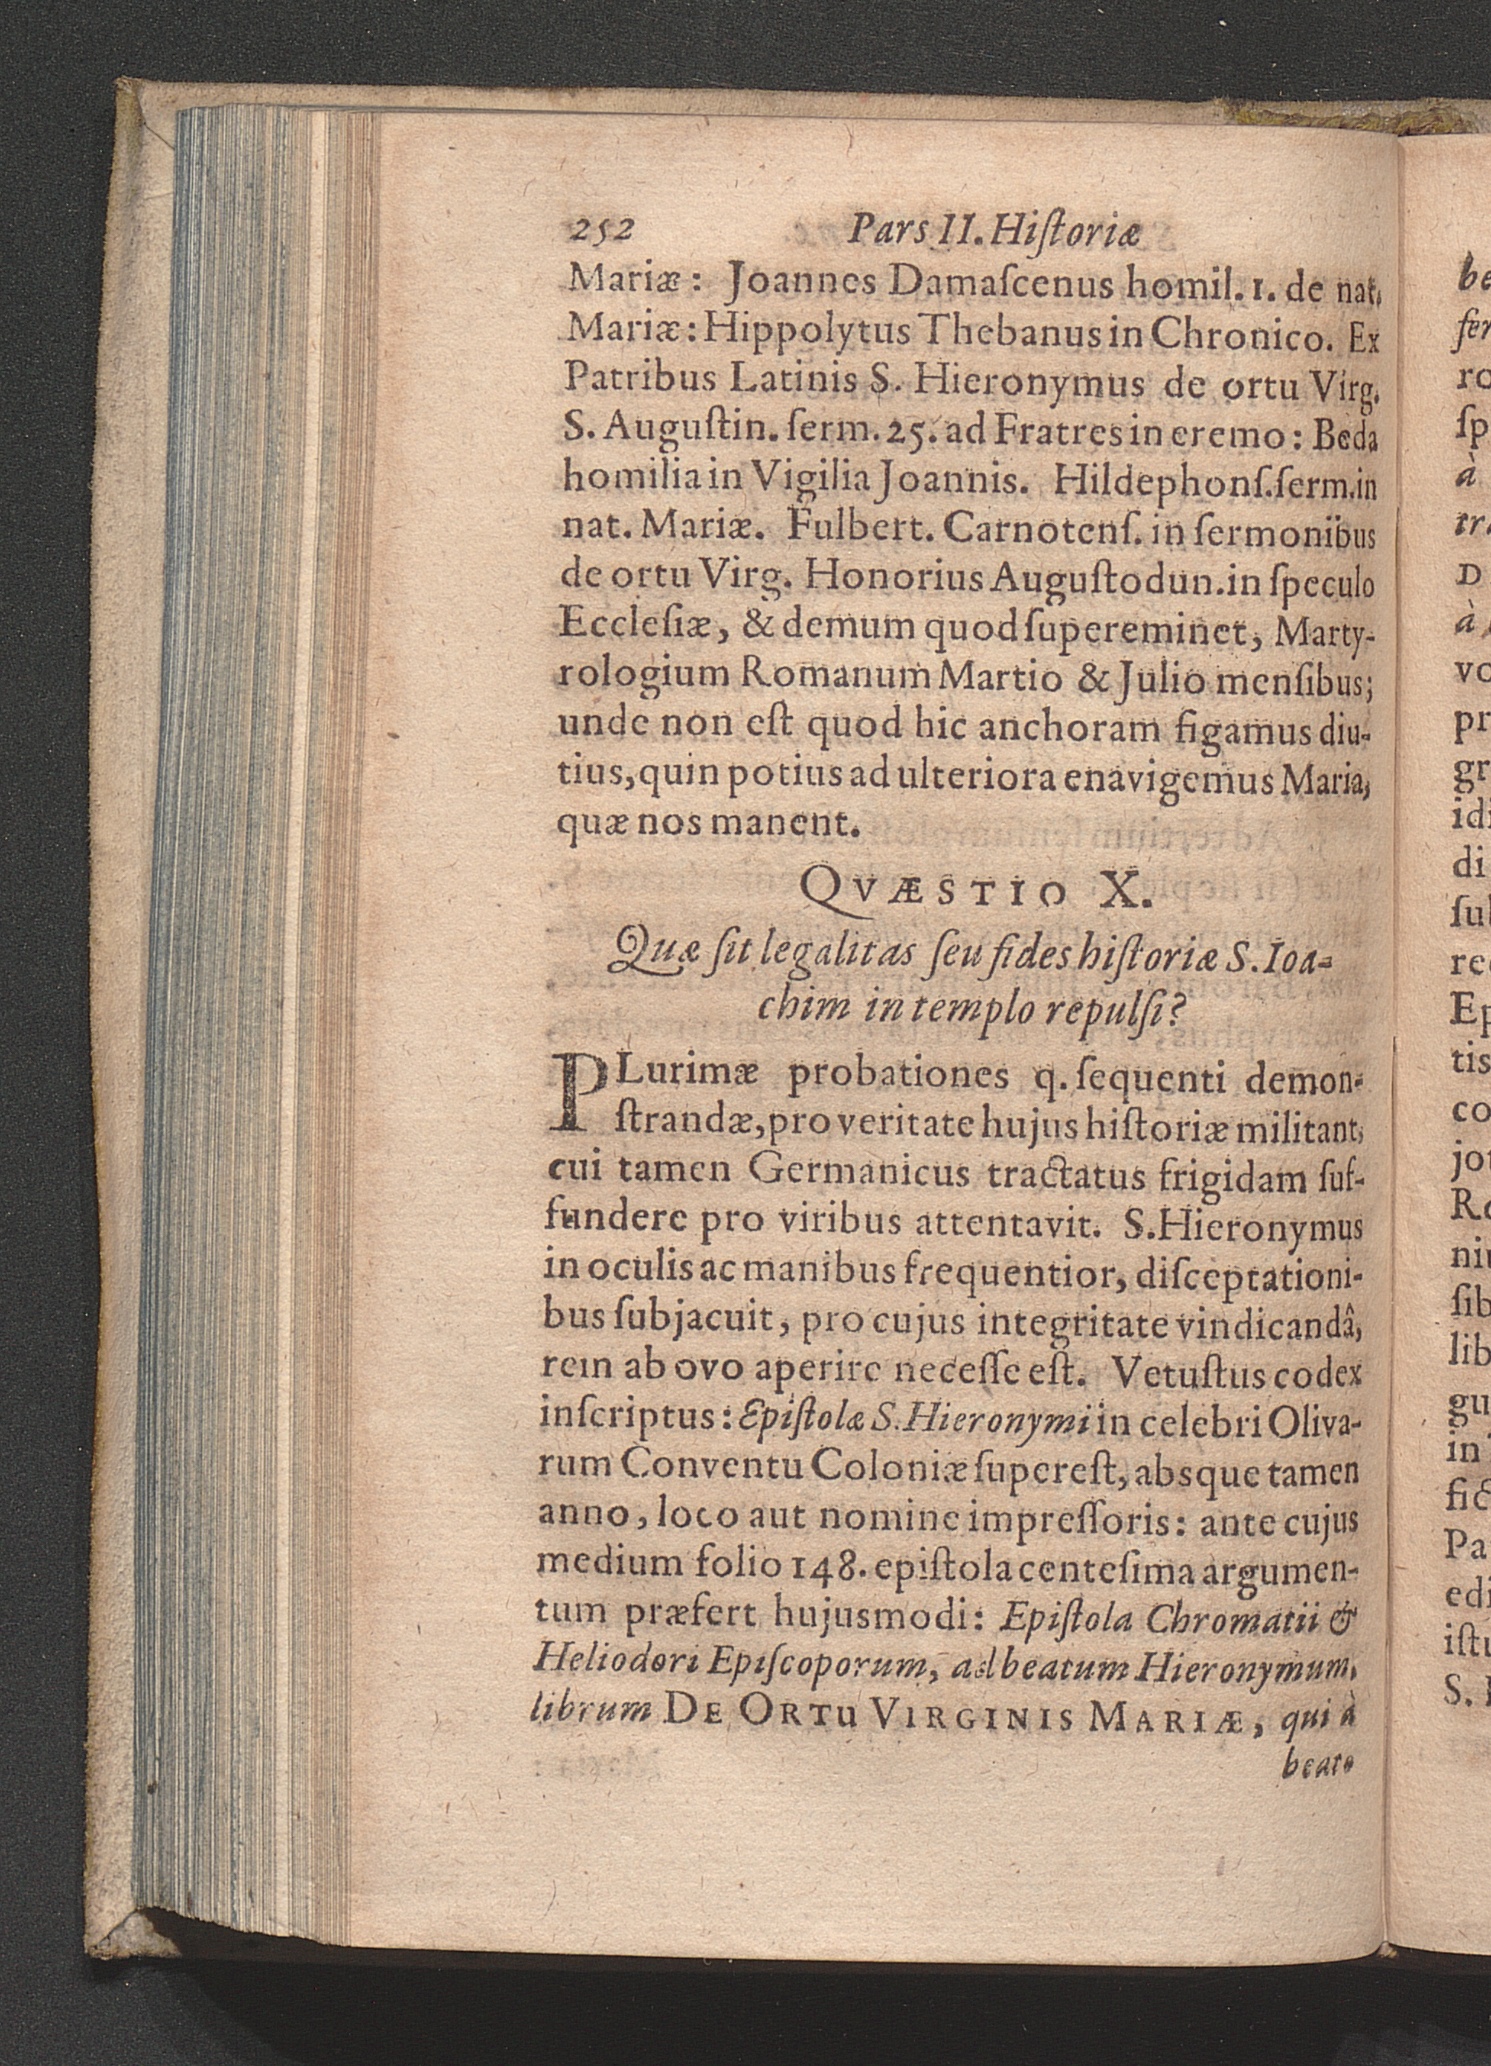 252 Pars II. Hiſtoriæ
Mariæ: Joannes Damaſcenus homil. 1. de nat.
Mariæ: Hippolytus Thebanus in Chronico. Ex
Patribus Latinis S. Hieronymus de ortu Virg.
S. Auguſtin. ſerm. 25. ad Fratres in eremo: Beda
homilia in Vigilia Joannis. Hildephonſ. ſerm. in
nat. Mariæ. Fulbert. Carnotenſ. in ſermonibus
de ortu Virg. Honorius Auguſtodun. in ſpeculo
Eccleſiæ, & demum quod ſupereminet, Marty-
rologium Romanum Martio & Julio menſibus;
unde non eſt quod hic anchoram figamus diu-
tius, quin potius ad ulteriora enavigemus Maria,
quæ nos manent.
QVÆSTIO X.
Quæ ſit legalitas ſeu fides hiſtoriæ S. Ioa-
chim in templo repulſi?
PLurimæ probationes q. ſequenti demon-
ſtrandæ, pro veritate hujus hiſtoriæ militant,
cui tamen Germanicus tractatus frigidam ſuf-
fundere pro viribus attentavit. S. Hieronymus
in oculis ac manibus frequentior, diſceptationi-
bus ſubjacuit, pro cujus integritate vindicandâ,
rem ab ovo aperire neceſſe eſt. Vetuſtus codex
inſcriptus: Epiſtolæ S. Hieronymi in celebri Oliva-
rum Conventu Coloniæ ſupereſt, absque tamen
anno, loco aut nomine impreſſoris: ante cujus
medium folio 148. epiſtola centeſima argumen-
tum præfert hujusmodi: Epiſtola Chromatii &
Heliodori Epiſcoporum, ad beatum Hieronymum,
librum DE ORTU VIRGINIS MARIÆ, qui à
beato
be
fer
ro
ſp
à
tra
D
à
vo
pr
gr
idi
di
ſul
re
Ep
tis
co
jo
Ro
niu
ſib
lib
gu
in
fic
Pa
edi
iſtu
S.